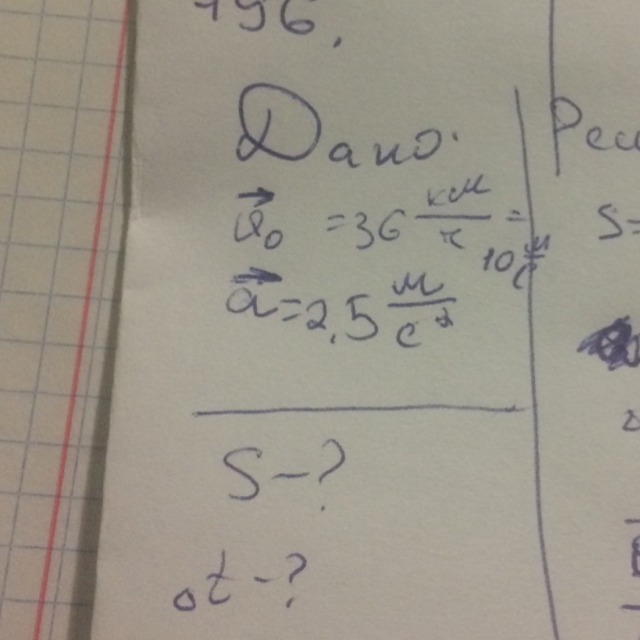 196.
Дано.
v⃗₀ = 36 км/ч = 10 м/с
a⃗ = 2,5 м/с²
S - ?
t - ?
S=